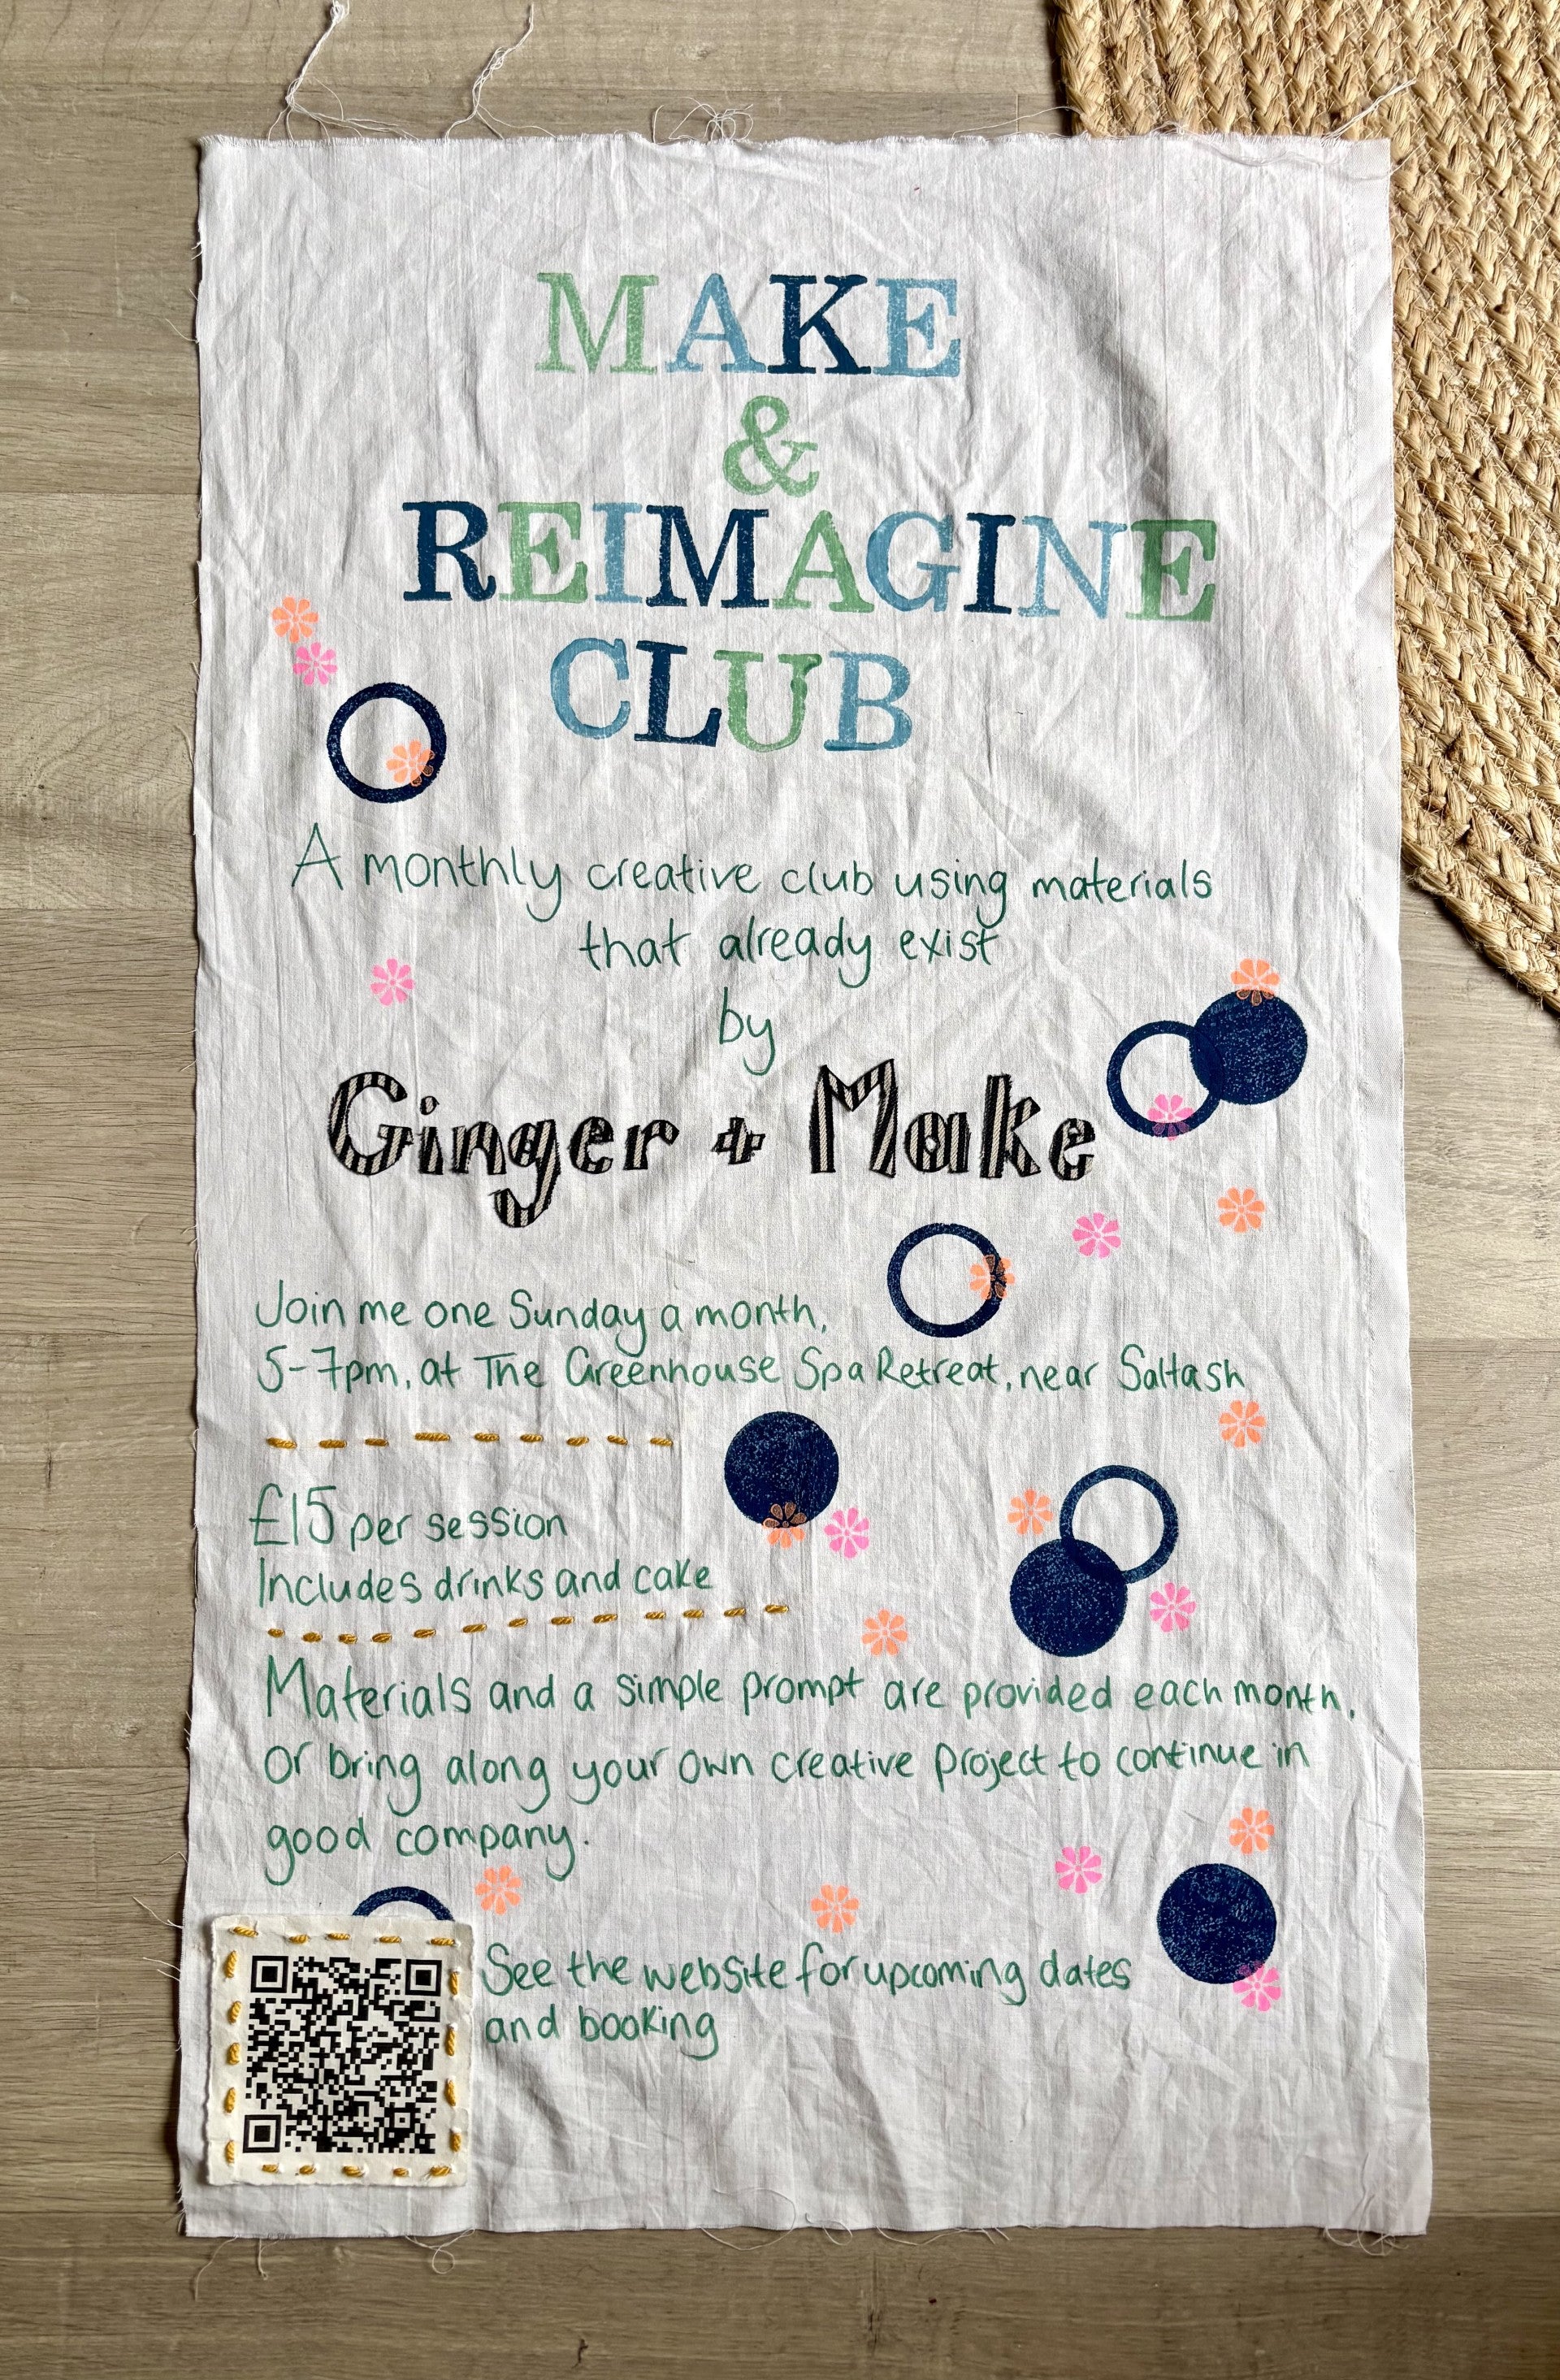 MAKE
&
REIMAGINE
CLUB
A monthly creative club using materials
that already exist
by
Ginger + Make
Join me one Sunday a month,
5-7pm, at The Greenhouse Spa Retreat, near Saltash
£15 per session
Includes drinks and cake
Materials and a simple prompt are provided each month,
or bring along your own creative project to continue in
good company.
See the website for upcoming dates
and booking